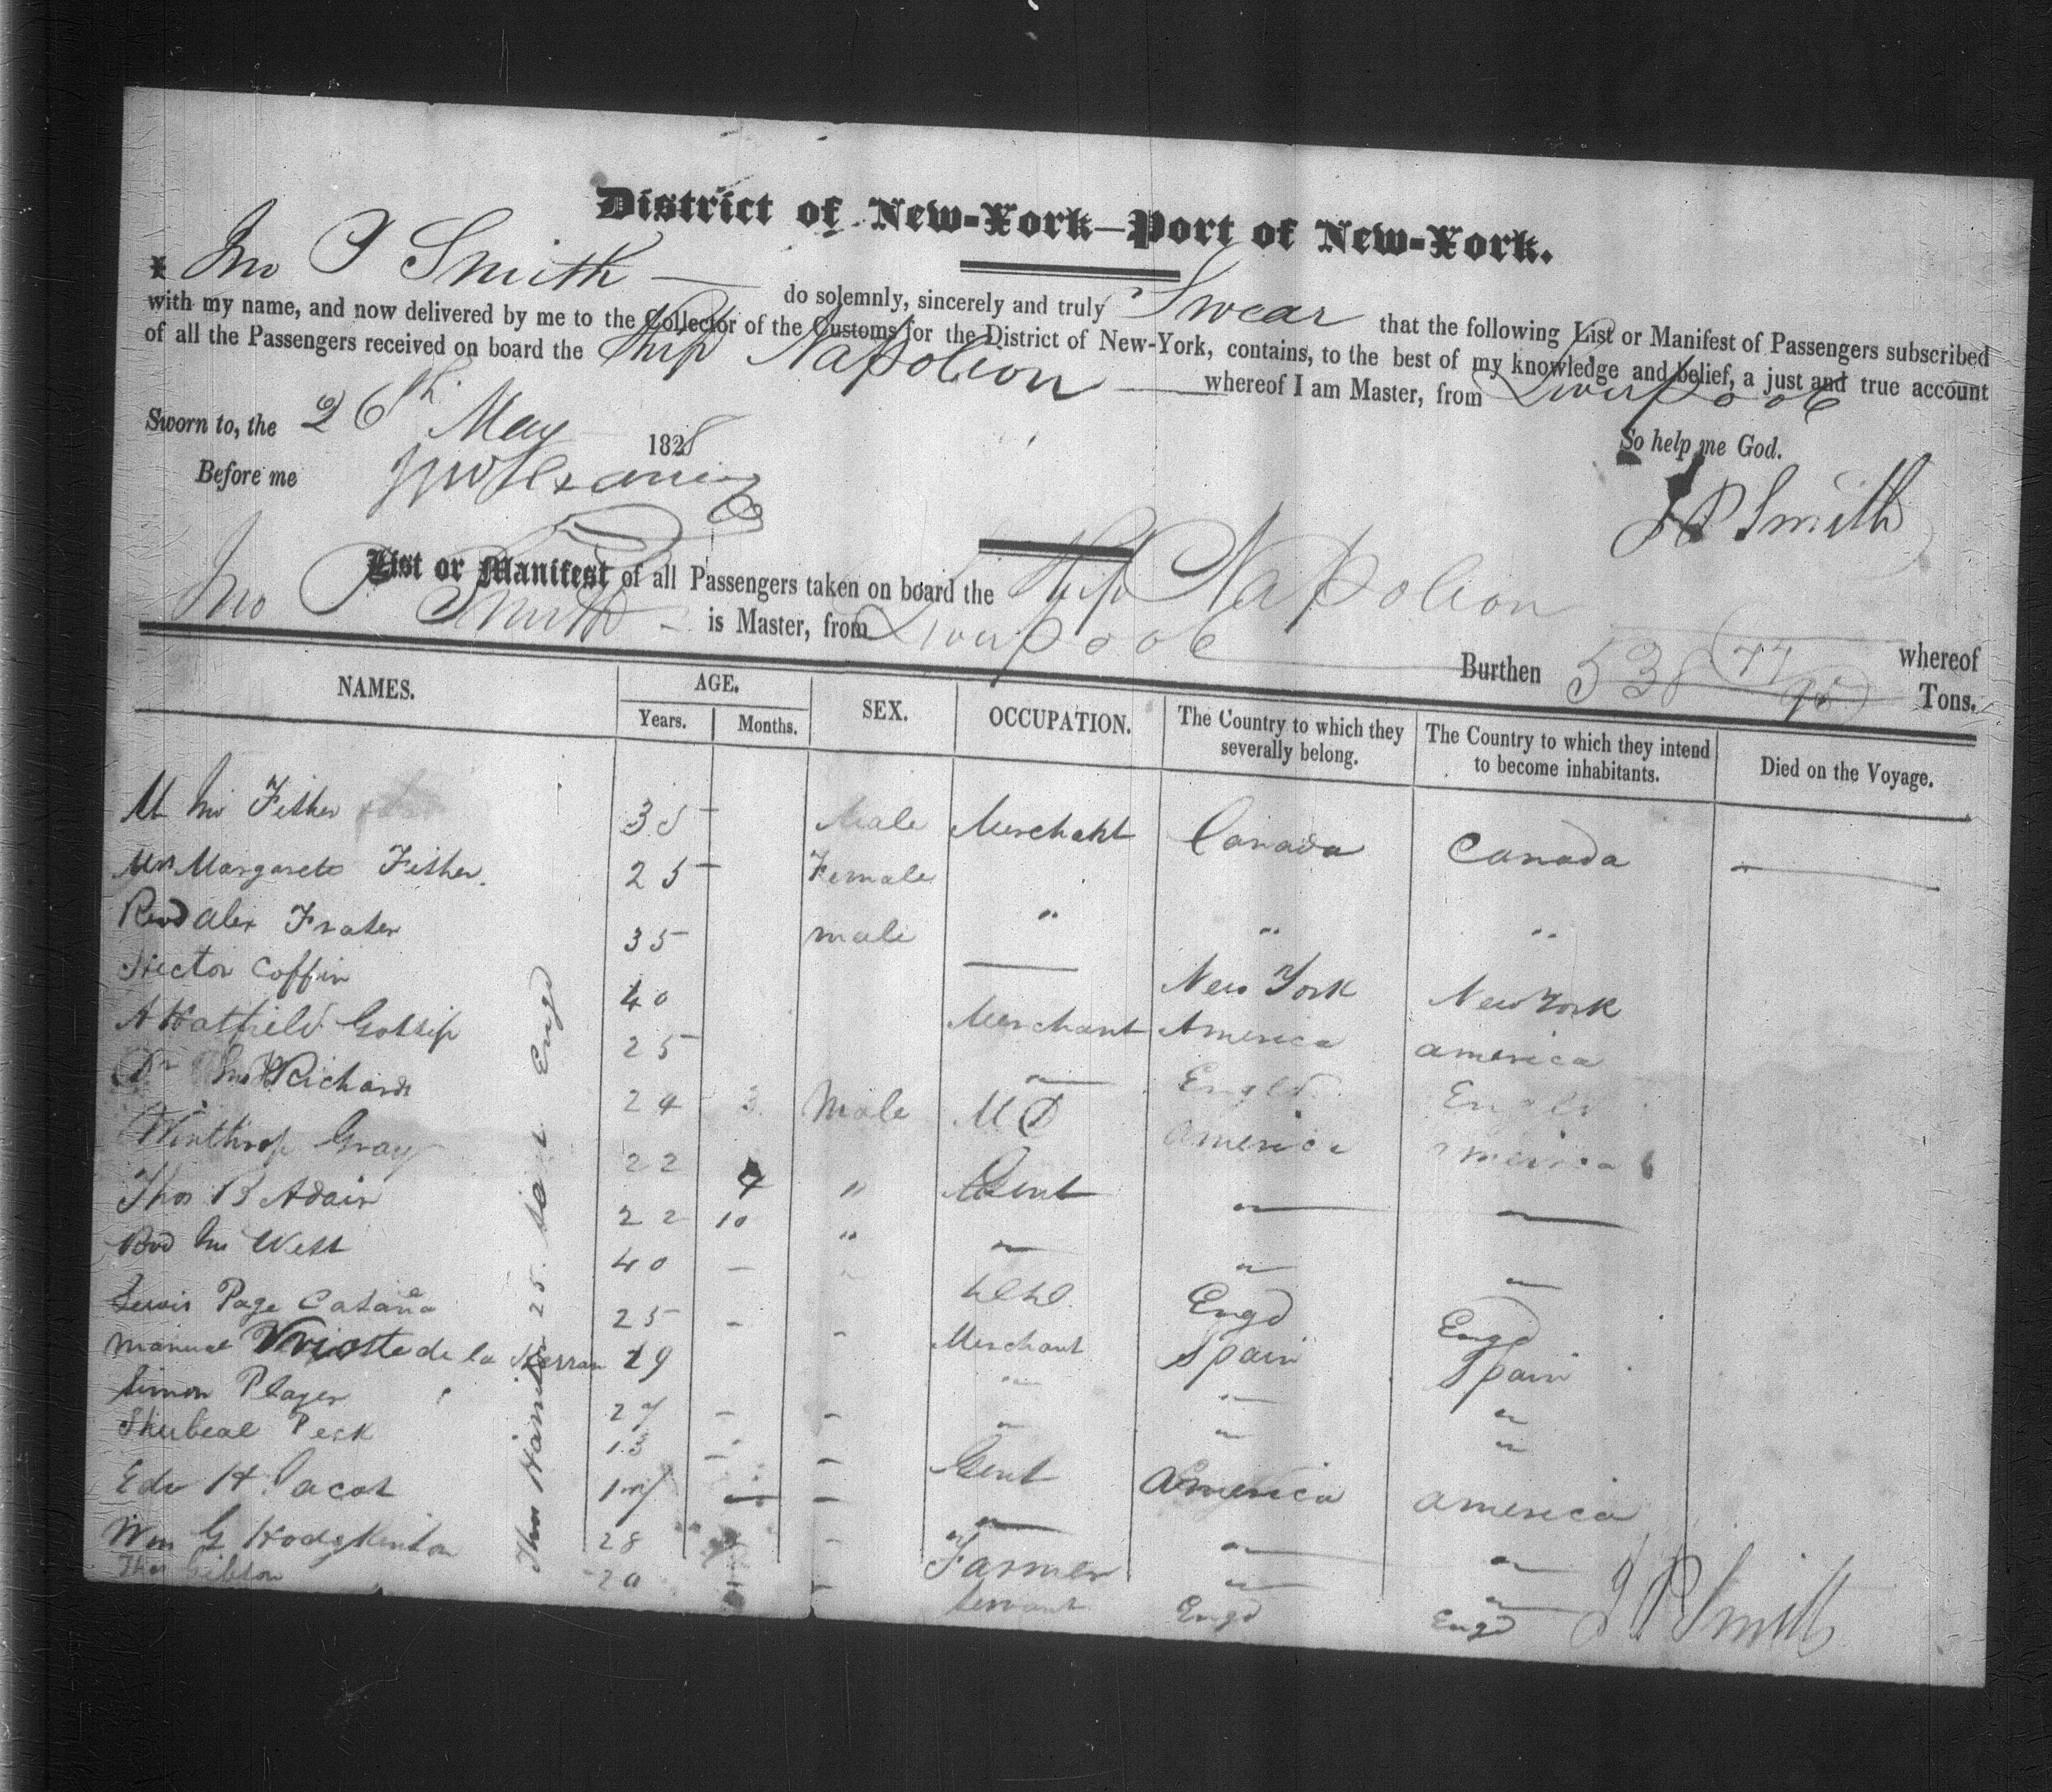 District of New-York—Port of New-York.
I Jno P Smith do solemnly, sincerely and truly Swear that the following List or Manifest of Passengers subscribed
with my name, and now delivered by me to the Collector of the Customs for the District of New-York, contains, to the best of my knowledge and belief, a just and true account
of all the Passengers received on board the Ship Napoleon whereof I am Master, from Liverpool
Sworn to, the 26th May 1828 So help me God.
Before me
J P Smith
List or Manifest of all Passengers taken on board the Ship Napoleon whereof
Jno P Smith is Master, from Liverpool Burthen 538 77/95 Tons.
NAMES. AGE. Years. Months. SEX. OCCUPATION. The Country to which they severally belong. The Country to which they intend to become inhabitants. Died on the Voyage.
Mr Jno Fisher 35 Male Merchant Canada Canada —
Mrs Margarets Fisher. 25 Female " " "
Revd Alex Frater 35 male — New York New York
Hector Coffin 40 Merchant America america
A Hatfield Gossip 25 — Engld Engld
Dr Jno Richards 24 3 Male M D america america
Winthrop Gray 22 4 " Gent — —
Thos B Adair 22 10 " " " "
Revd Jno West 40 - " Engd Engd
Lewis Page Cataña 25 - - Merchant Spain Spain
Manual Vrioste de la Herran 29 " " "
Simon Player 27 - - " " "
Shubeal Peck 13 - - Gent America america
Edw H Jacot 17 - - " " "
Wm G Hodgkinson 28 - Farmer " "
Thos Gibson 20 - - Servant Engd Engd
Thos Hamilton 25. Same Engd
J P Smith